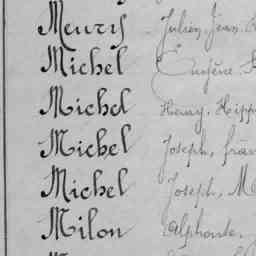 Meurys Julien, Jean
Michel Eugène
Michel Henry, Hipp
Michel Joseph, fran
Michel Joseph, M
Milon Alphonse,